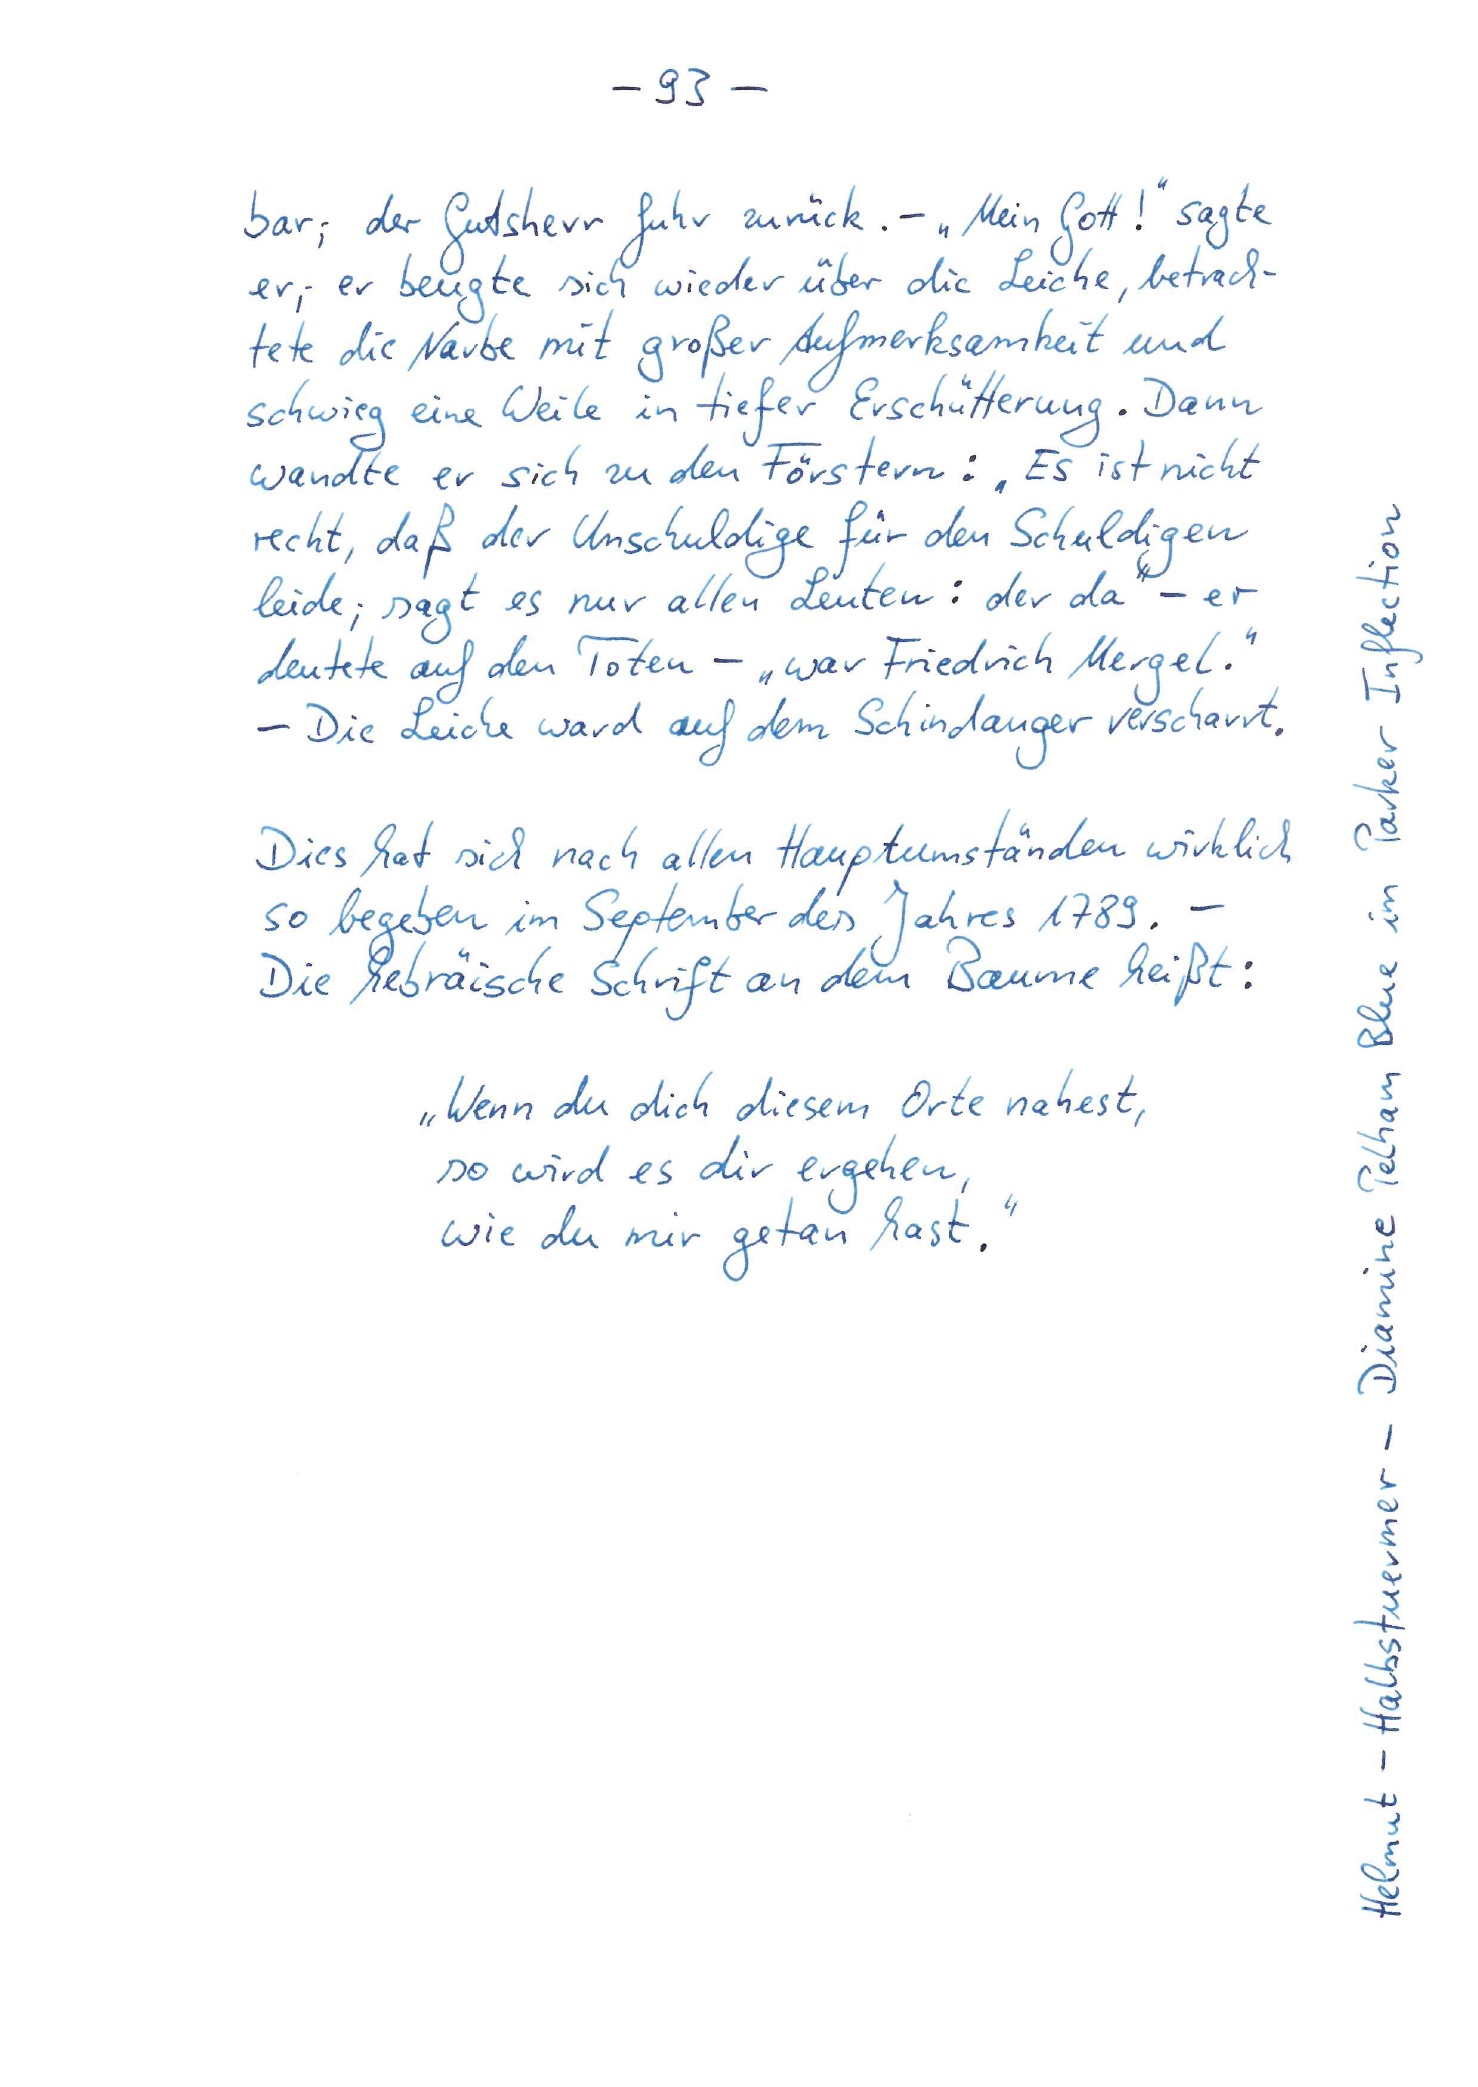 – 93 –
bar; der Gutsherr fuhr zurück. – „Mein Gott!“ sagte
er; er beugte sich wieder über die Leiche, betrach-
tete die Narbe mit großer Aufmerksamkeit und
schwieg eine Weile in tiefer Erschütterung. Dann
wandte er sich zu den Förstern: „Es ist nicht
recht, daß der Unschuldige für den Schuldigen
leide; sagt es nur allen Leuten: der da“ – er
deutete auf den Toten – „war Friedrich Mergel.“
– Die Leiche ward auf dem Schindanger verscharrt.
Dies hat sich nach allen Hauptumständen wirklich
so begeben im September des Jahres 1789. –
Die hebräische Schrift an dem Baume heißt:
„Wenn du dich diesem Orte nahest,
so wird es dir ergehen,
wie du mir getan hast.“
Helmut – Halbstuermer – Diamine Pelham Blue in Parker Inflection